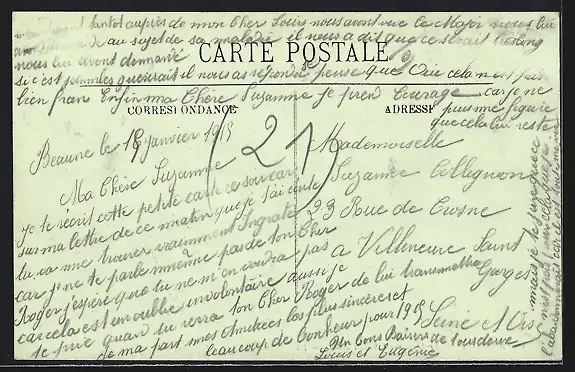 tantôt auprès de mon cher Louis nous avons vue le Major nous lui
au sujet de sa maladie il nous a dit que ce serait très long
nous lui avont demandé
CARTE POSTALE
si c'est il nous as répondu je pense que Oui cela n'est pas
bien franc Enfin ma Chère Suzanne Je prend Courage car je ne
puis me figurer
que cela lui reste
CORRESPONDANCE
ADRESSE
Beaune le 18 janvier 1915
(21)
Ma Chère Suzanne
je te récrit cette petite carte ce soir car
sur ma lettre de ce matin que je t'ai écrite
tu va me trouver vraimment Ingrate
car je ne te parle même pas de ton Cher
Roger j'espère que tu ne m'en voudra pas
car cela est un oublie involontaire aussi je
te prie quan tu verra ton Cher Roger de lui transmettre
de ma part mes amitiées les plus sincères et
beaucoup de bonheur pour 1915
Un Gros Baisers de tous deux
Louis et Eugénie
Mademoiselle
Suzanne Collignon
23 Rue de Crosne
a Villeneuve Saint
Georges
Seine et Oise
mais je te
n'est pas